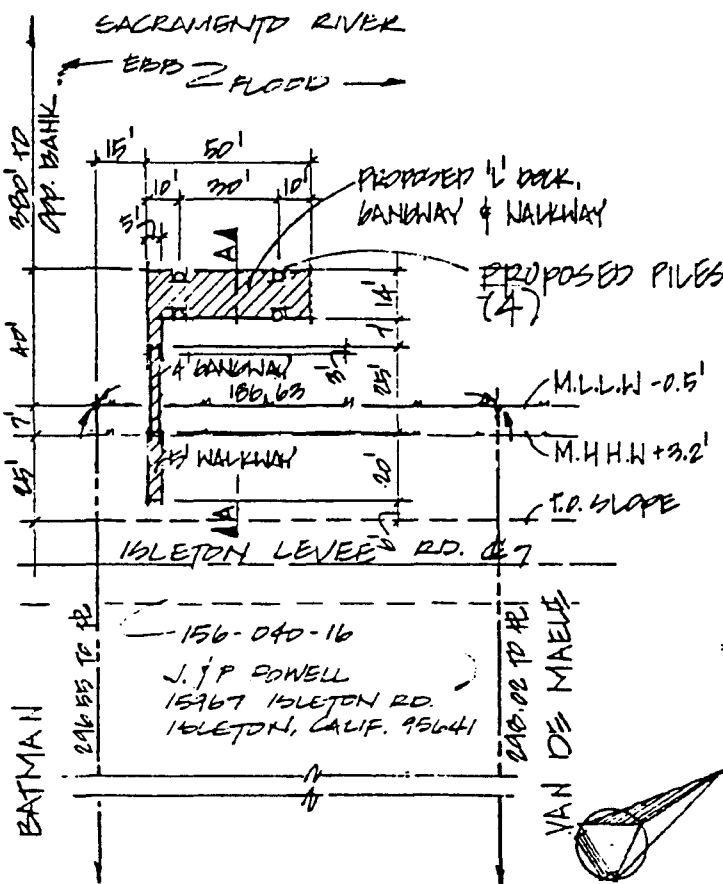 SACRAMENTO RIVER
EBB
FLOOD
380' TO
OPP. BANK
15'
50'
10'
30'
10'
5'
PROPOSED 'L' DOCK,
GANGWAY & WALKWAY
A
PROPOSED PILES
(4)
14'
40'
4' GANGWAY
3'
25'
186.63
M.L.L.W -0.5'
7'
M.H.H.W +3.2'
5' WALKWAY
20'
25'
T.O. SLOPE
A
6'
ISLETON LEVEE RD. ℄
156-040-16
J. & P. POWELL
15967 ISLETON RD.
ISLETON, CALIF. 95641
BATMAN
296.55 TO PL
298.02 TO PL
VAN DE MAELE